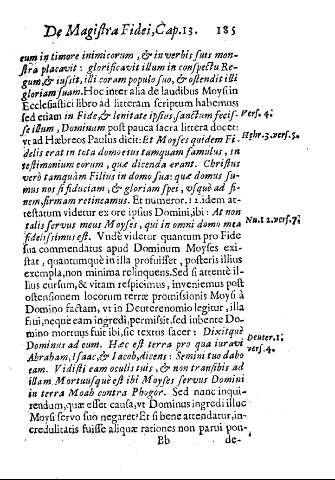 De Magistra Fidei, Cap.13. 185
eum in timore inimicorum, & in verbis suis mon-
stra placavit: glorificavit illum in conspectu Re-
gum, & iussit, illi coram populo suo, & ostendit illi
gloriam suam. Hoc inter alia de laudibus Moysi in
Ecclesiastici libro ad litteram scriptum habemus
sed etiam in Fide, & lenitate ipsius, sanctum fecis- Vers. 4.
se illum, Dominum post pauca sacra littera docet:
vt ad Hæbreos Paulus dicit: Et Moyses quidem Fi- Hæbr. 3. vers. 5.
delis erat in tota domo eius tamquam famulus, in
testimonium eorum, quæ dicenda erant. Christus
verò tamquàm Filius in domo sua: quæ domus su-
mus nos si fiduciam, & gloriam spei, vsquè ad fi-
nem, firmam retineamus. Et numeror. 12. idem at-
testatum videtur ex ore ipsius Domini, ibi: At non
talis servus meus Moyses, qui in omni domo mea Nu. 12. vers. 7.
fidelissimus est. Vndè videtur quantum pro Fide
sua commendatus apud Dominum Moyses exi-
stat, quantumquè in illa profuisset, posteris illius
exempla, non minima relinquens. Sed si attentè il-
lius cursum, & vitam respicimus, inveniemus post
ostensionem locorum terræ promissionis Moysi à
Domino factam, vt in Deuteronomio legitur, illa
frui, neque eam ingredi, permissit, sed iubente Do-
mino mortuus fuit ibi, sic textus sacer: Dixitquè
Dominus ad eum. Hæc est terra pro qua iuravi Deuter. 1.
Abraham, Isaac, & Iacob, dicens: Semini tuo dabo vers. 4.
eam. Vidisti eam oculis tuis, & non transibis ad
illam. Mortuusquè est ibi Moyses servus Domini
in terra Moab contra Phogor. Sed nunc inqui-
rendum, quæ esset causa, vt Dominus ingredi illuc
Moysi servo suo negaret? Et si bene attendatur, in-
credulitatis fuisse aliquæ rationes non parui pon-
Bb de-